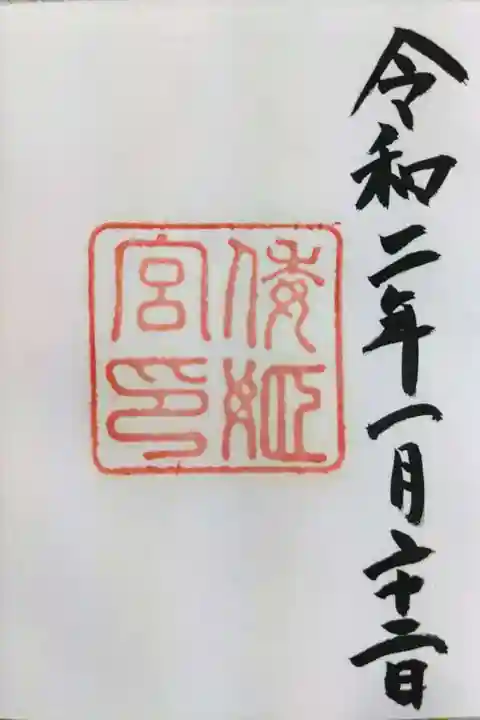 令和二年一月二十二日
倭姫
宮印